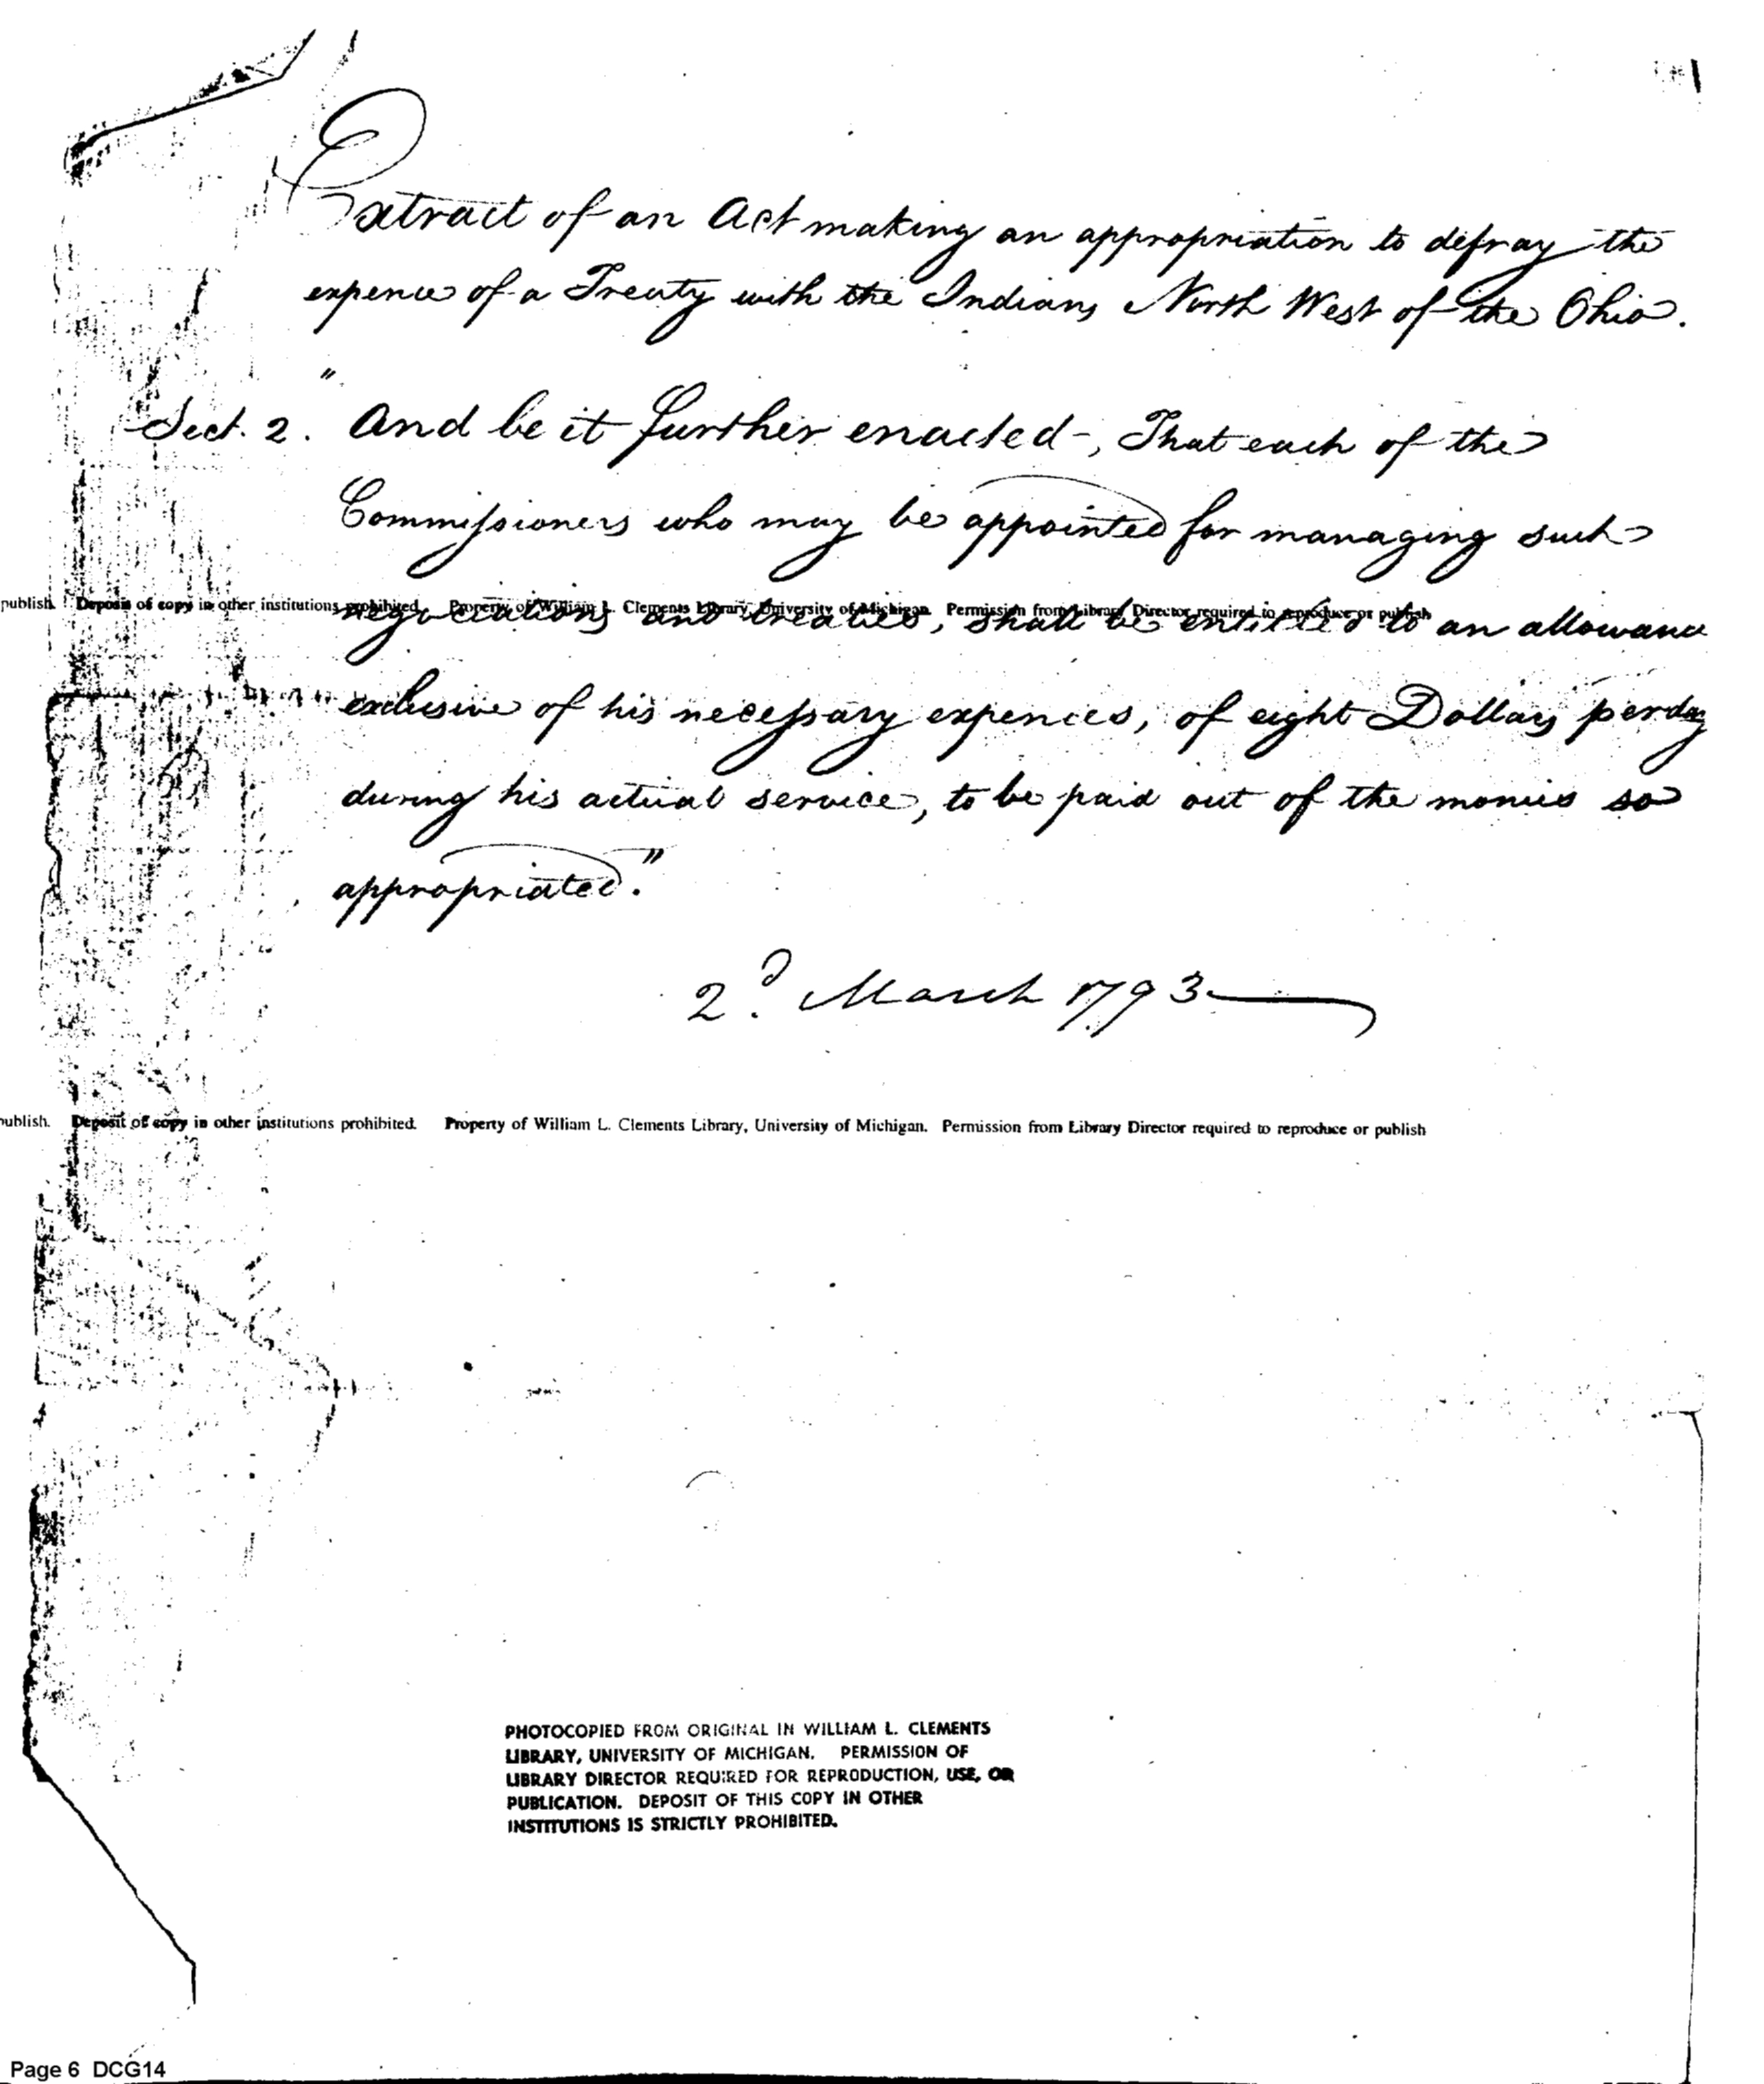 Extract of an Act making an appropriation to defray the
expence of a Treaty with the Indians North West of the Ohio.
"
Sect. 2. And be it further enacted, That each of the
Commissioners who may be appointed for managing such
publish. Deposit of copy in other institutions prohibited. Property of William L. Clements Library, University of Michigan. Permission from Library Director required to reproduce or publish
negociations and treaties, shall be entitled to an allowance
exclusive of his necessary expences, of eight Dollars per day
during his actual service, to be paid out of the monies so
appropriated."
2d. March 1793
publish. Deposit of copy in other institutions prohibited. Property of William L. Clements Library, University of Michigan. Permission from Library Director required to reproduce or publish
PHOTOCOPIED FROM ORIGINAL IN WILLIAM L. CLEMENTS
LIBRARY, UNIVERSITY OF MICHIGAN. PERMISSION OF
LIBRARY DIRECTOR REQUIRED FOR REPRODUCTION, USE, OR
PUBLICATION. DEPOSIT OF THIS COPY IN OTHER
INSTITUTIONS IS STRICTLY PROHIBITED.
Page 6 DCG14